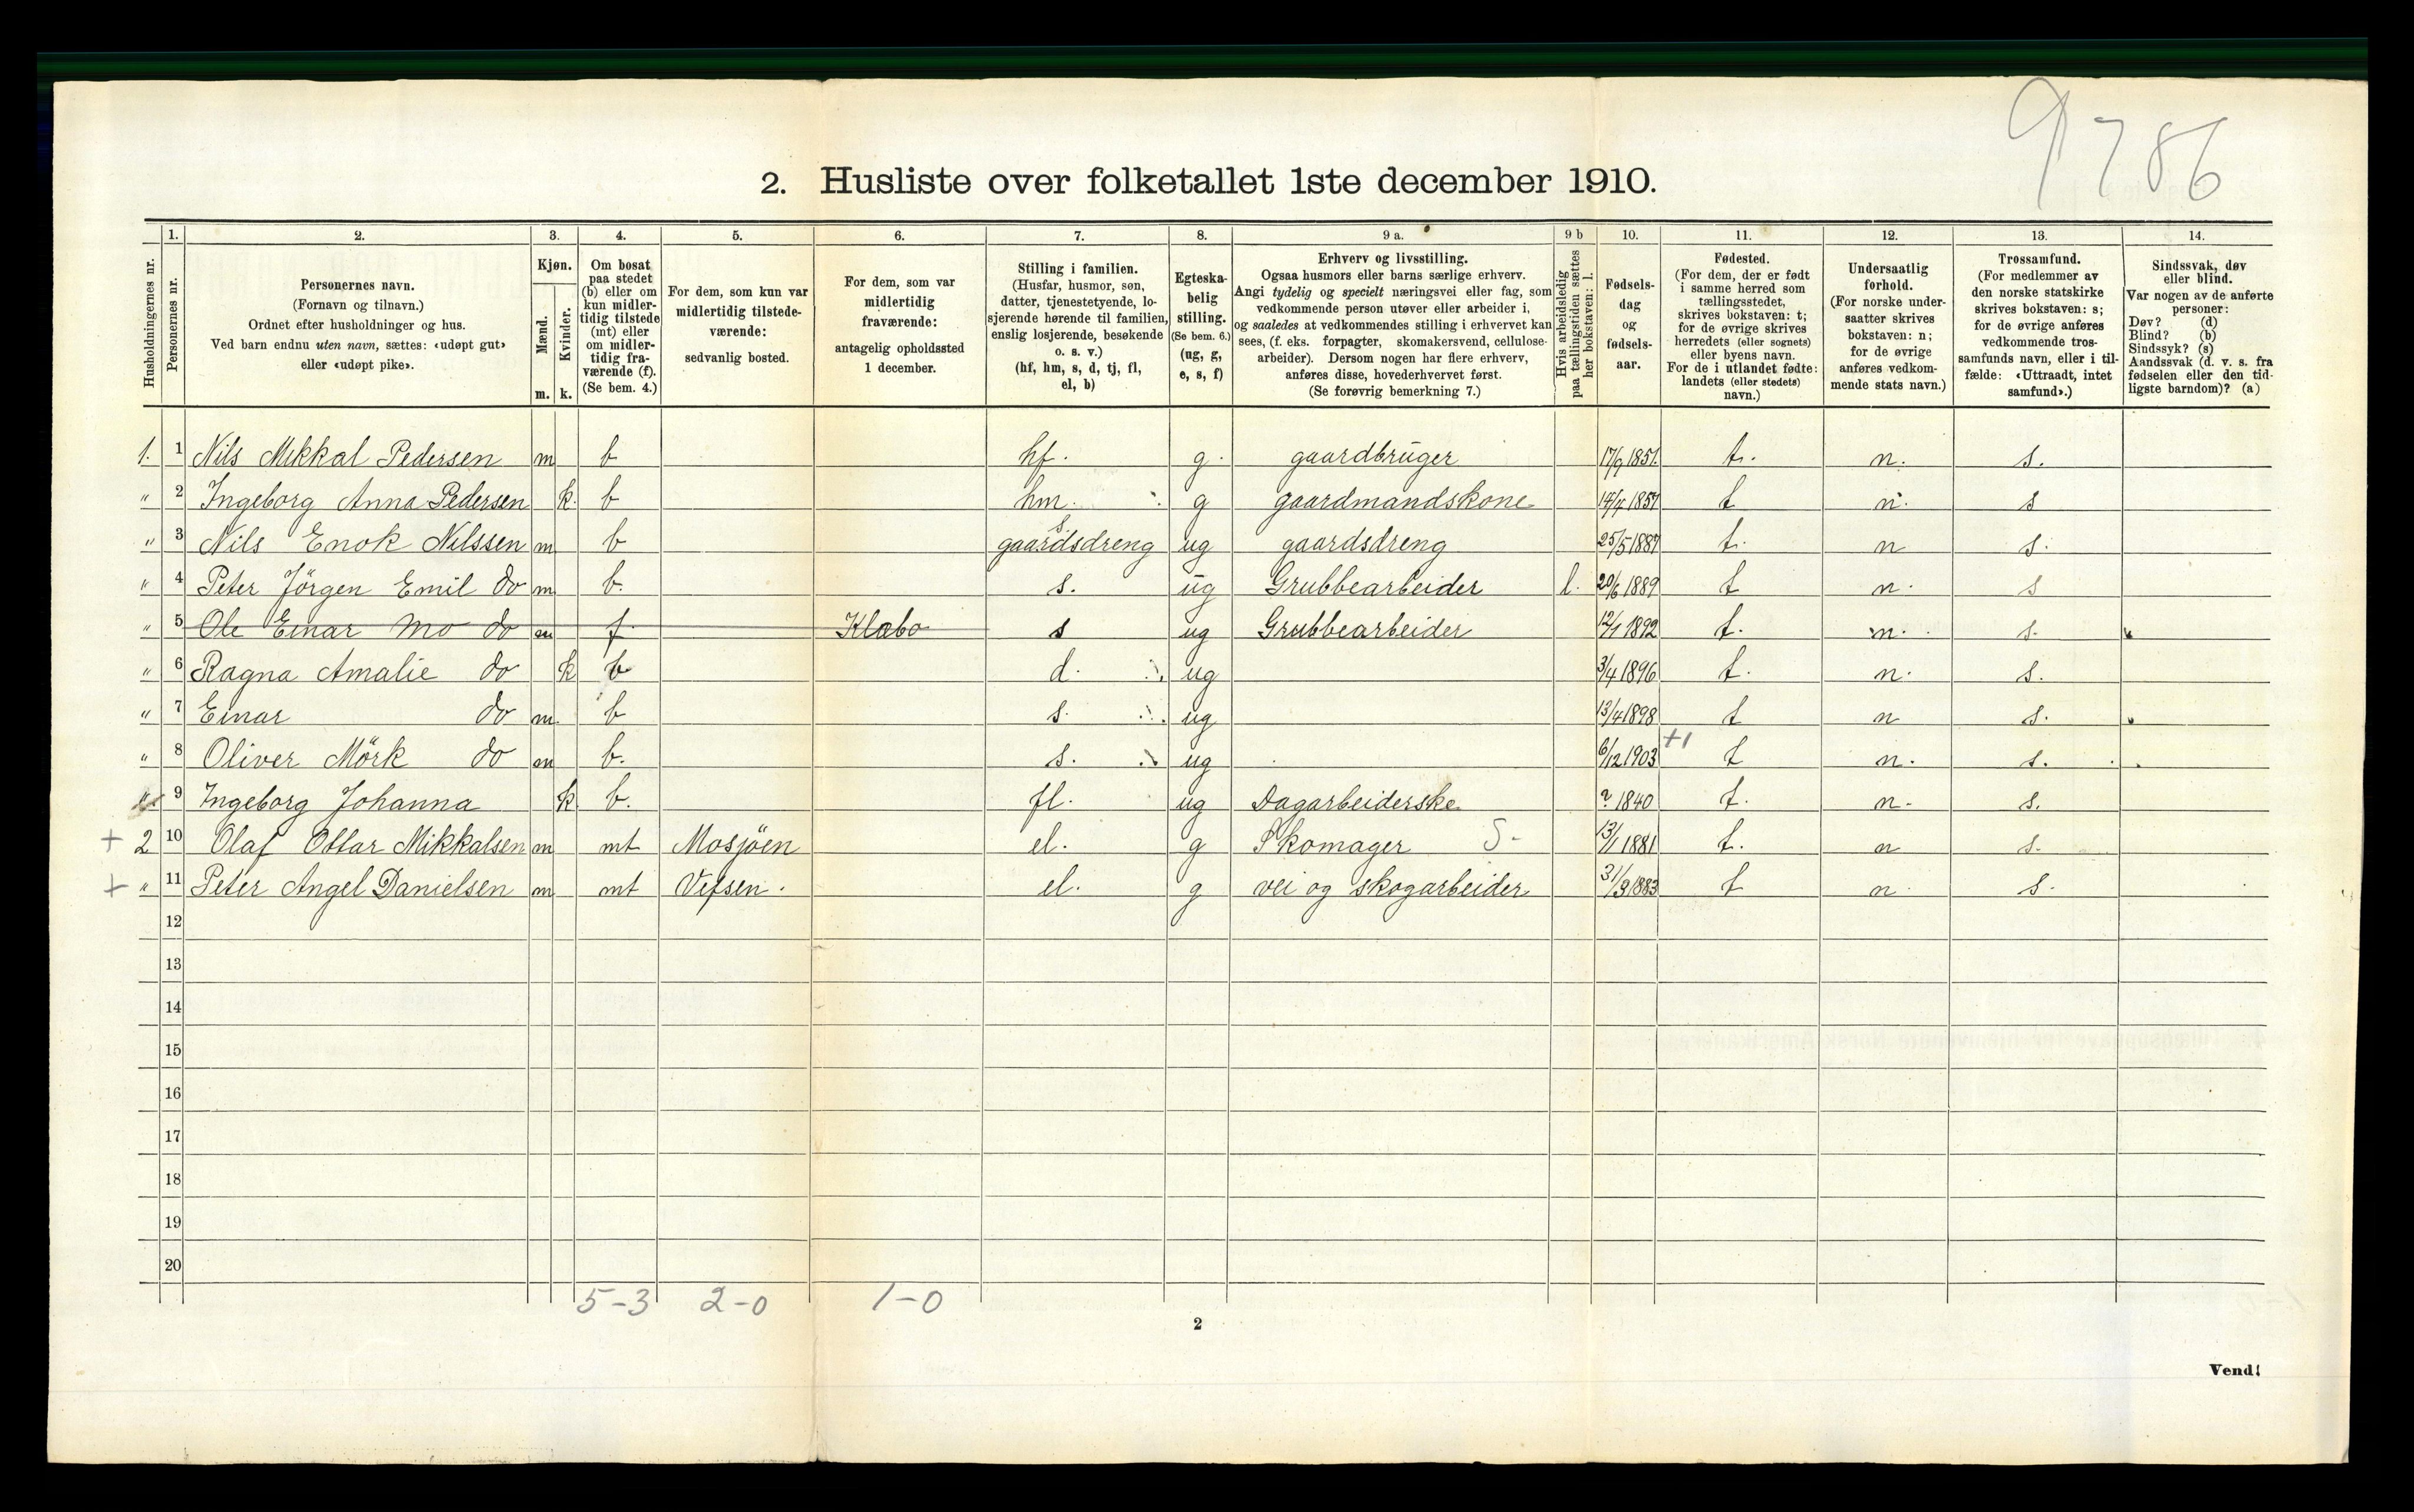 9786
2. Husliste over folketallet 1ste december 1910.
1. 2. 3. 4. 5. 6. 7. 8. 9 a. 9 b 10. 11. 12. 13. 14.
Husholdningernes nr.
Personernes nr.
Personernes navn.
(Fornavn og tilnavn.)
Ordnet efter husholdninger og hus.
Ved barn endnu uten navn, sættes: «udøpt gut»
eller «udøpt pike».
Kjøn.
Mænd.
Kvinder.
m. k.
Om bosat
paa stedet
(b) eller om
kun midler-
tidig tilstede
(mt) eller
om midler-
tidig fra-
værende (f).
(Se bem. 4.)
For dem, som kun var
midlertidig tilstede-
værende:
sedvanlig bosted.
For dem, som var
midlertidig
fraværende:
antagelig opholdssted
1 december.
Stilling i familien.
(Husfar, husmor, søn,
datter, tjenestetyende, lo-
sjerende hørende til familien,
enslig losjerende, besøkende
o. s. v.)
(hf, hm, s, d, tj, fl,
el, b)
Egteska-
belig
stilling.
(Se bem. 6.)
(ug, g,
e, s, f)
Erhverv og livsstilling.
Ogsaa husmors eller barns særlige erhverv.
Angi tydelig og specielt næringsvei eller fag, som
vedkommende person utøver eller arbeider i,
og saaledes at vedkommendes stilling i erhvervet kan
sees, (f. eks. forpagter, skomakersvend, cellulose-
arbeider). Dersom nogen har flere erhverv,
anføres disse, hovederhvervet først.
(Se forøvrig bemerkning 7.)
Hvis arbeidsledig
paa tællingstiden sættes
her bokstaven: l.
Fødsels-
dag
og
fødsels-
aar.
Fødested.
(For dem, der er født
i samme herred som
tællingsstedet,
skrives bokstaven: t;
for de øvrige skrives
herredets (eller sognets)
eller byens navn.
For de i utlandet fødte:
landets (eller stedets)
navn.)
Undersaatlig
forhold.
(For norske under-
saatter skrives
bokstaven: n;
for de øvrige
anføres vedkom-
mende stats navn.)
Trossamfund.
(For medlemmer av
den norske statskirke
skrives bokstaven: s;
for de øvrige anføres
vedkommende tros-
samfunds navn, eller i til-
fælde: «Uttraadt, intet
samfund».)
Sindssvak, døv
eller blind.
Var nogen av de anførte
personer:
Døv? (d)
Blind? (b)
Sindssyk? (s)
Aandssvak (d. v. s. fra
fødselen eller den tid-
ligste barndom)? (a)
1. 1 Nils Mikkal Pedersen m b hf. g. gaardbruger 17/9 1851. t. n. s.
" 2 Ingeborg Anna Pedersen k. b hm. g gaardmandskone 14/4 1857 t n. s
" 3 Nils Enok Nilssen m b s gaardsdreng ug gaardsdreng 25/5 1887 t. n s.
" 4 Peter Jörgen Emil do m b. s. ug Grubbearbeider l. 20/6 1889 t n. s
" 5 Ole Einar Mo do m f Klabo s ug Grubbearbeider 12/1 1892 t. n. s.
" 6 Ragna Amalie do k b d. ug 3/4 1896 t. n. s.
" 7 Einar do m. b s. ug 13/4 1898 t n s.
" 8 Oliver Mörk do m b. s. ug 6/12 1903 +1 t n. s.
" 9 Ingeborg Johanna k b. fl. ug Dagarbeiderske ? 1840 t. n. s.
+ 2 10 Olaf Ottar Mikkalsen m mt Mosjöen el. g Skomager S- 13/1 1881 t. n s.
+ " 11 Peter Angel Danielsen m mt Vefsen. el. g vei og skogarbeider 31/3 1883 t n. s.
12
13
14
15
16
17
18
19
20
5-3 2-0 1-0
2
Vend!